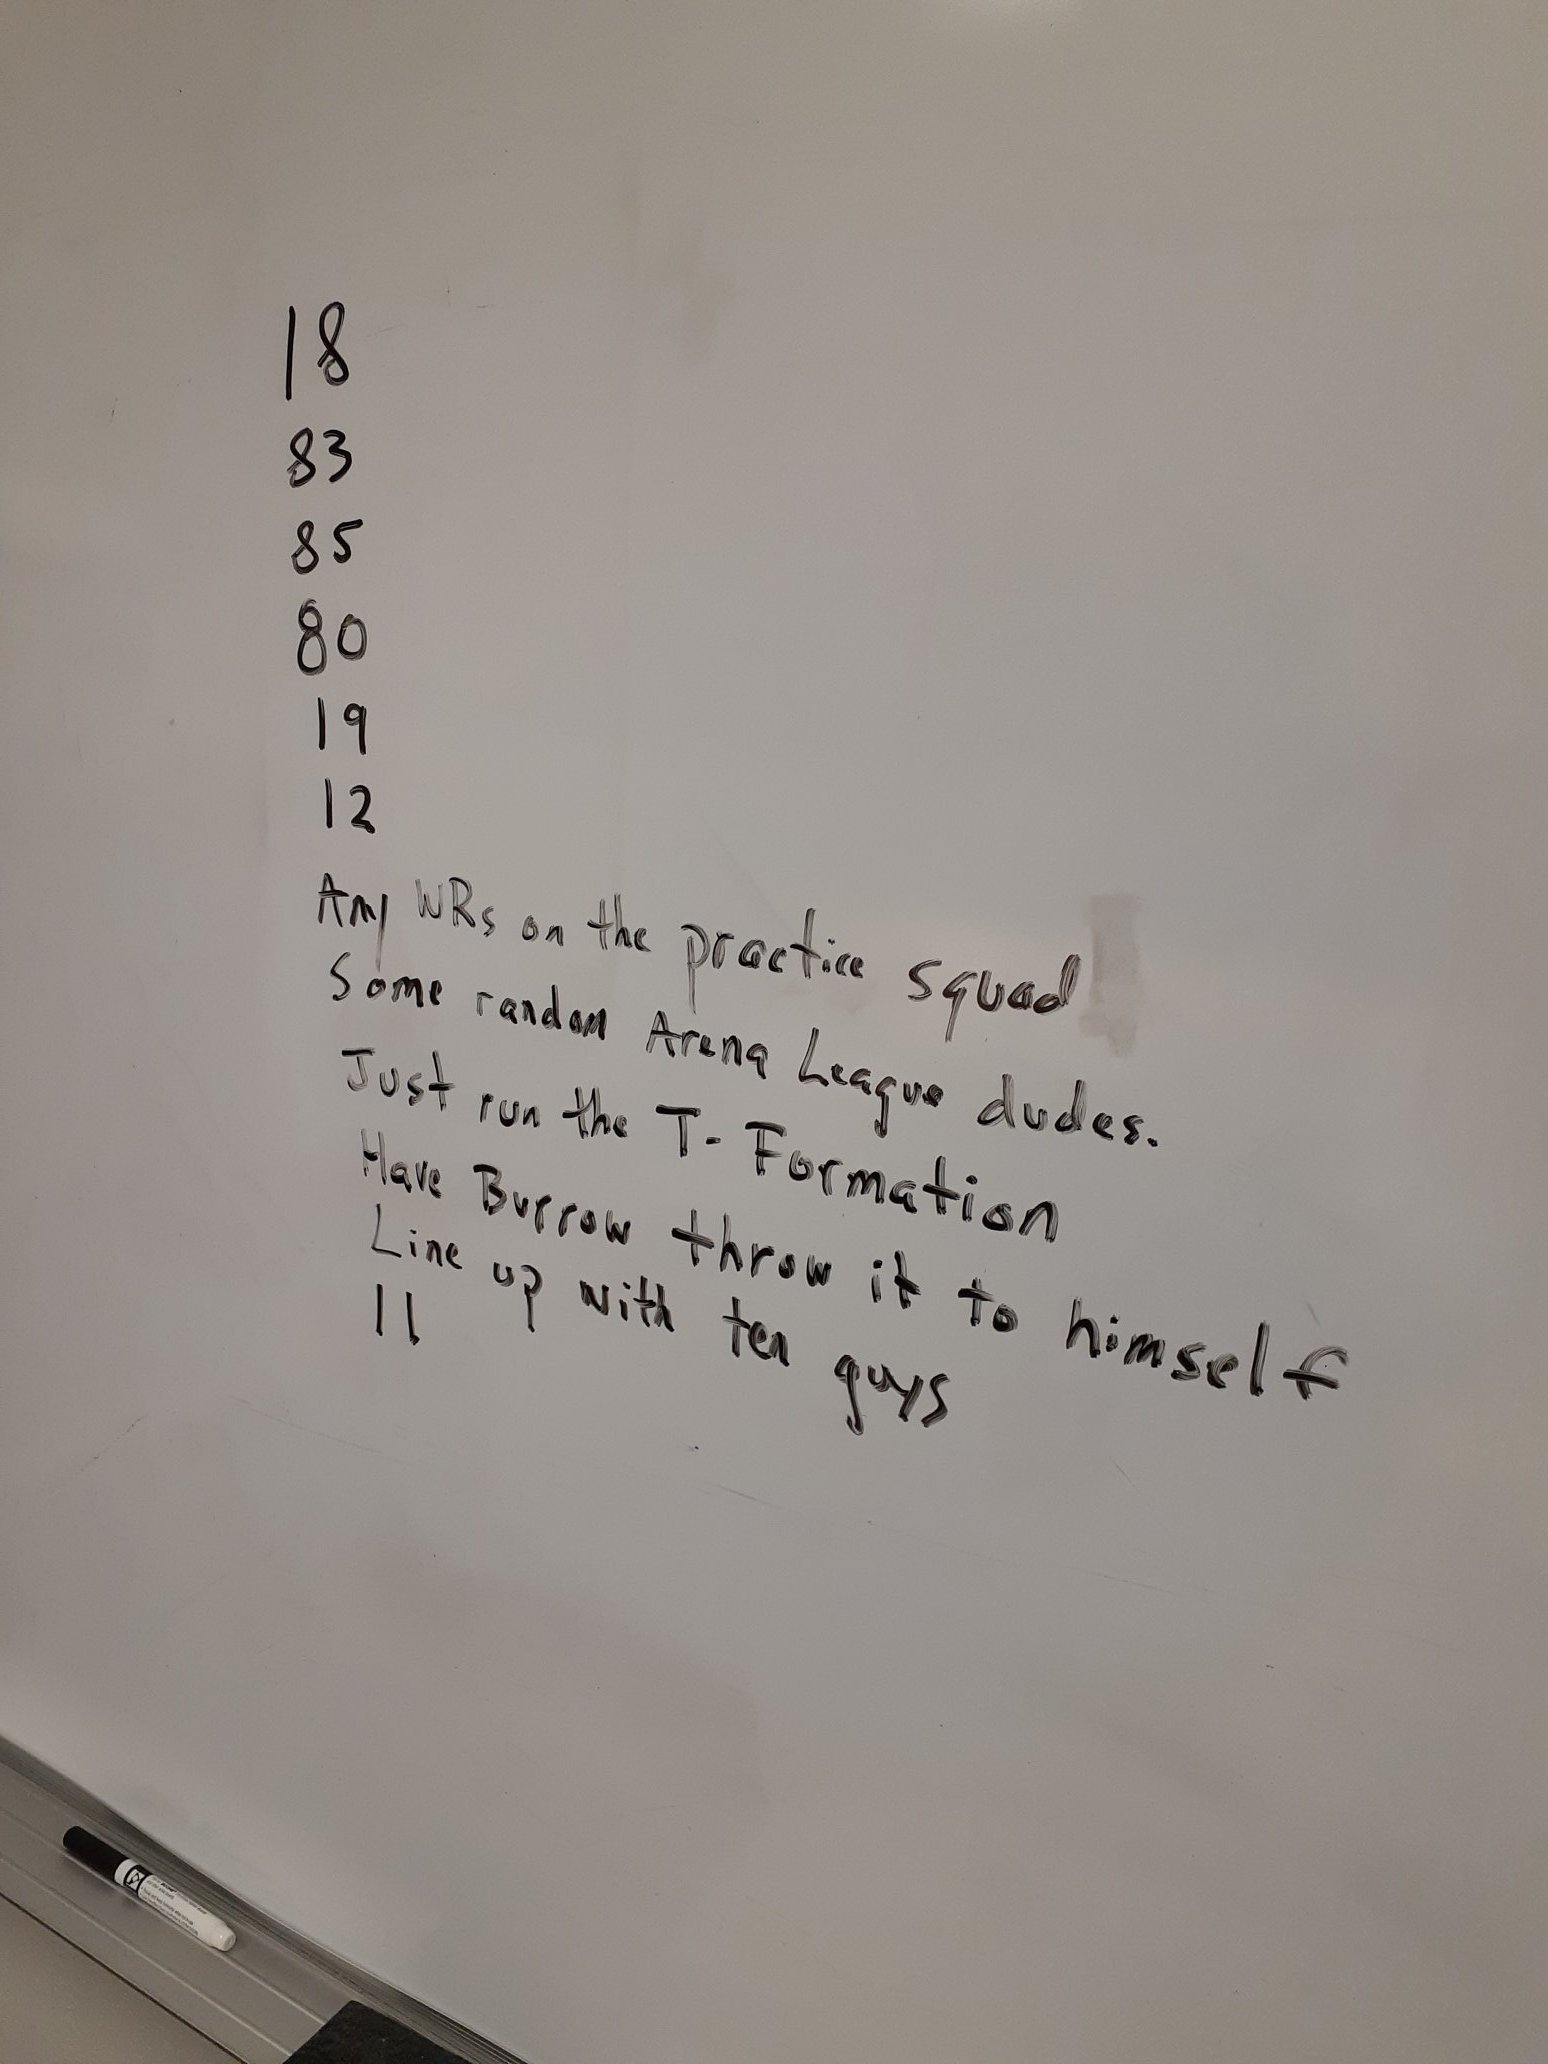 18
83
85
80
19
12
Any WRs on the practice squad
Some random Arena League dudes.
Just run the T-Formation
Have Burrow throw it to himself
Line up with ten guys
11